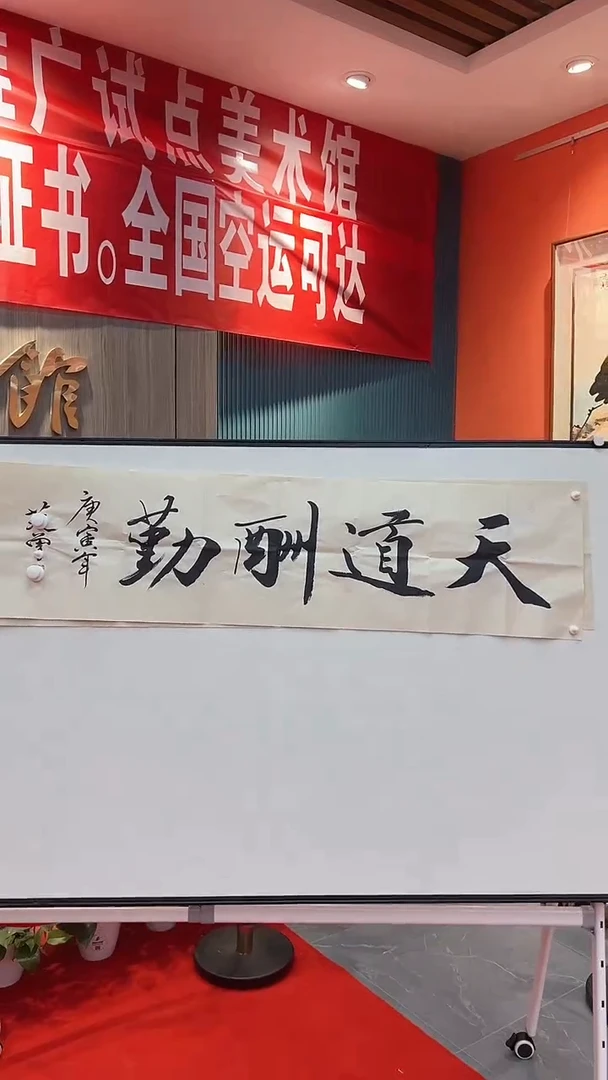 广试点美术馆
证书。全国空运可达
馆
天道酬勤
庚寅年
范曾